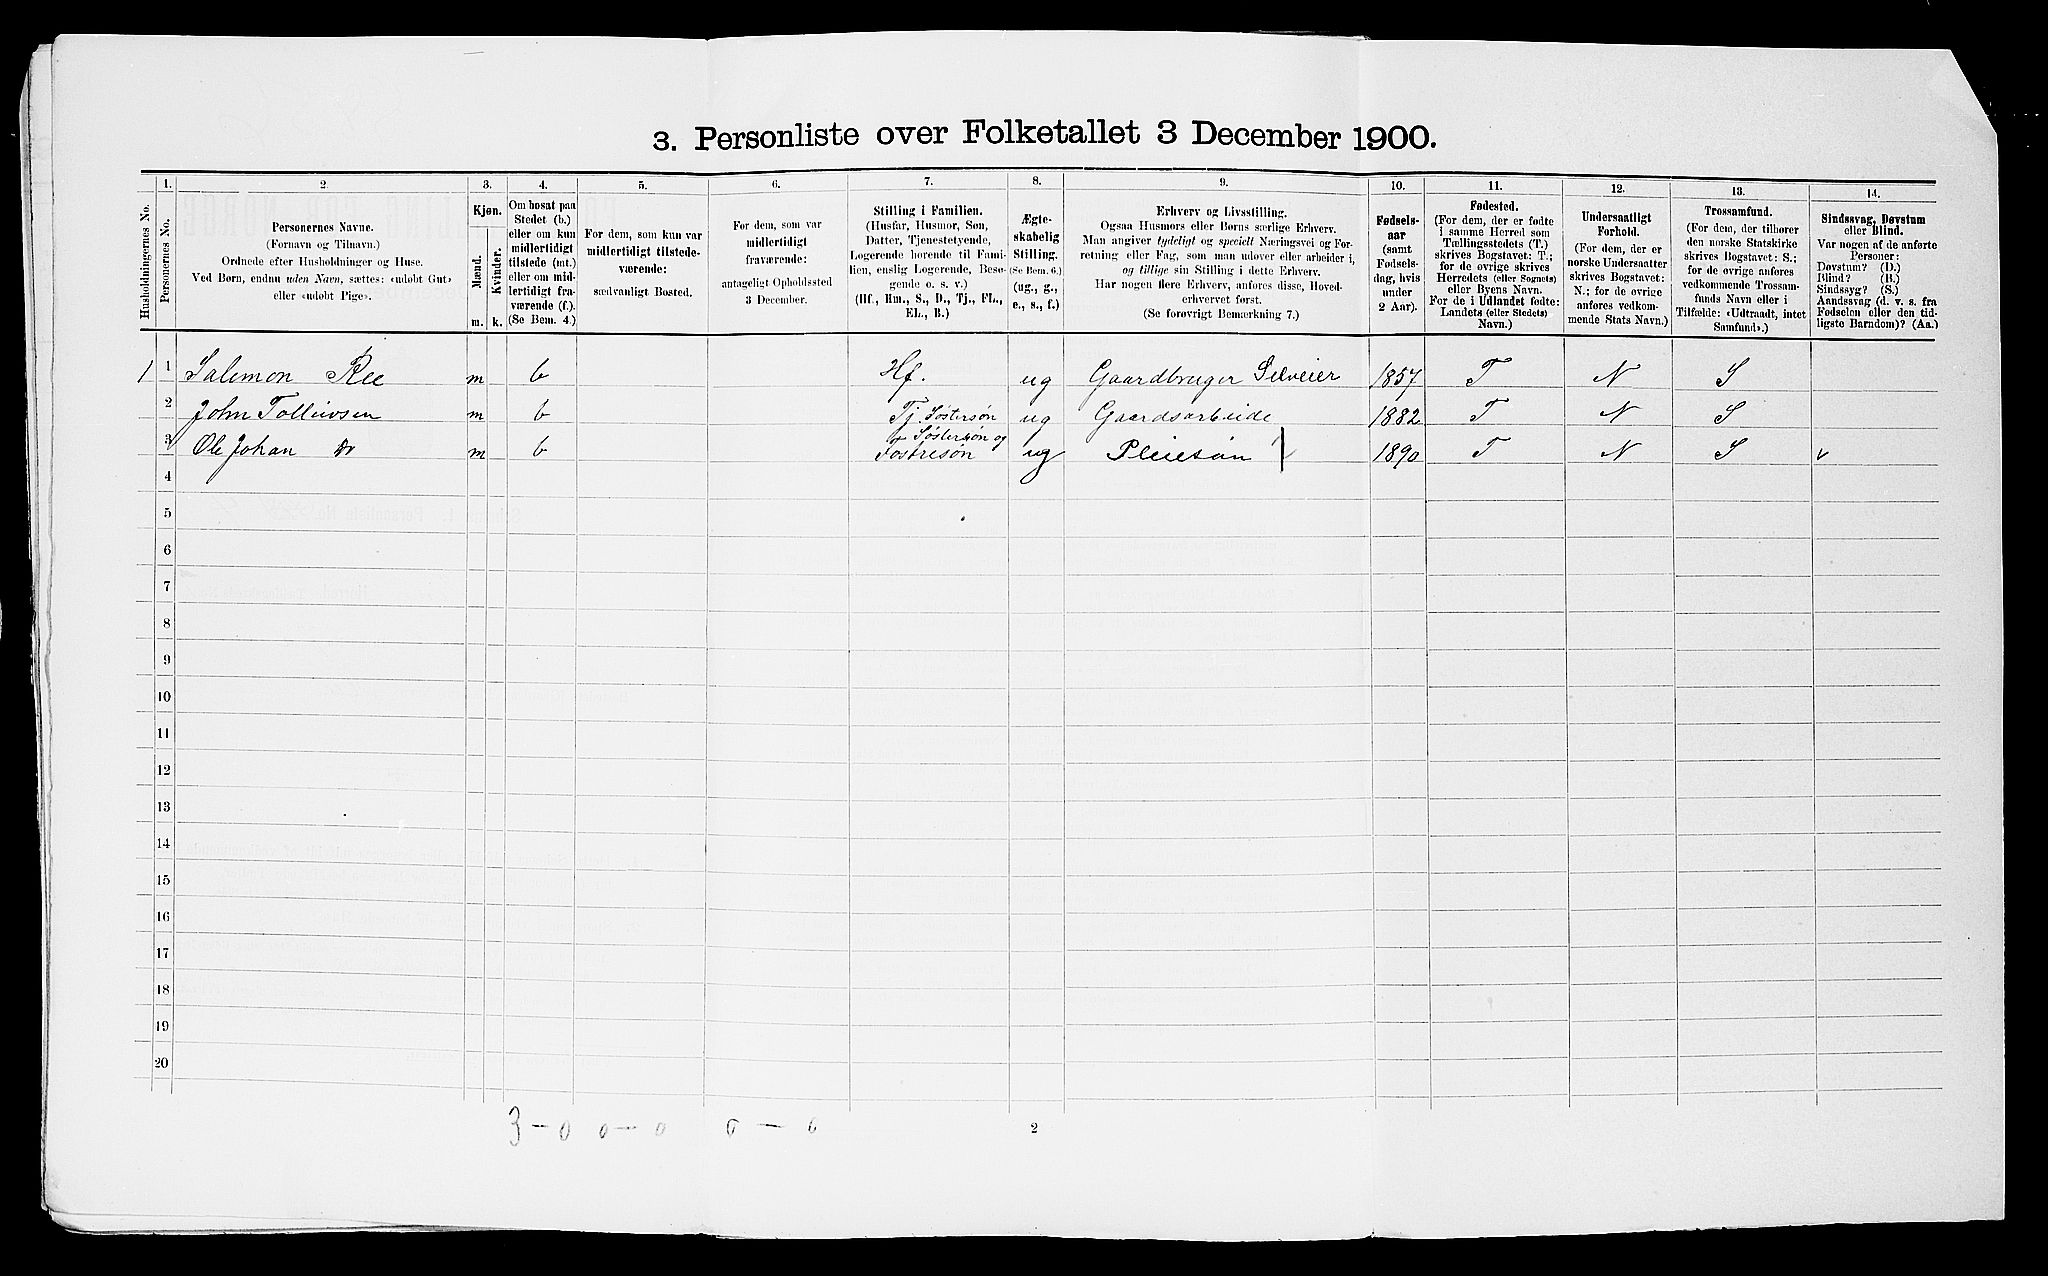 3. Personliste over Folketallet 3 December 1900.
Husholdningernes No.
1.
Personernes No.
2.
Personernes Navne.
(Fornavn og Tilnavn.)
Ordnede efter Husholdninger og Huse.
Ved Børn, endnu uden Navn, sættes: «udøbt Gut»
eller «udøbt Pige».
3.
Kjøn.
Mænd.
Kvinder.
m. k.
4.
Om bosat paa
Stedet (b.)
eller om kun
midlertidigt
tilstede (mt.)
eller om mid-
lertidigt fra-
værende (f.).
(Se Bem. 4.)
5.
For dem, som kun var
midlertidigt tilstede-
værende:
sædvanligt Bosted.
6.
For dem, som var
midlertidigt
fraværende:
antageligt Opholdssted
3 December.
7.
Stilling i Familien.
(Husfar, Husmor, Søn,
Datter, Tjenestetyende,
Logerende hørende til Fami-
lien, enslig Logerende, Besø-
gende o. s. v.)
(Hf., Hm., S., D., Tj., FL.,
EL., B.)
8.
Ægte-
skabelig
Stilling.
(Se Bem. 6.)
(ug., g.,
e., s., f.)
9.
Erhverv og Livsstilling.
Ogsaa Husmors eller Børns særlige Erhverv.
Man angiver tydeligt og specielt Næringsvei og For-
retning eller Fag, som man udøver eller arbeider i,
og tillige sin Stilling i dette Erhverv.
Har nogen flere Erhverv, anføres disse, Hoved-
erhvervet først.
(Se forøvrigt Bemærkning 7.)
10.
Fødsels-
aar
(samt
Fødsels-
dag, hvis
under
2 Aar).
11.
Fødested.
(For dem, der er fødte
i samme Herred som
Tællingsstedets (T.)
skrives Bogstavet: T.;
for de øvrige skrives
Herredets (eller Sognets)
eller Byens Navn.
For de i Udlandet fødte:
Landets (eller Stedets)
Navn.)
12.
Undersaatligt
Forhold.
(For dem, der er
norske Undersaatter
skrives Bogstavet:
N.; for de øvrige
anføres vedkom-
mende Stats Navn.)
13.
Trossamfund.
(For dem, der tilhører
den norske Statskirke
skrives Bogstavet: S.;
for de øvrige anføres
vedkommende Trossam-
funds Navn eller i
Tilfælde: «Udtraadt, intet
Samfund».)
14.
Sindssvag, Døvstum
eller Blind.
Var nogen af de anførte
Personer:
Døvstum? (D.)
Blind? (B.)
Sindssyg? (S.)
Aandssvag (d. v. s. fra
Fødselen eller den tid-
ligste Barndom)? (Aa.)
1 1 Salomon Ree m b Hf. ug Gaardbruger Selveier 1857 T N S
2 John Tolleivsen m b Tj. Søstersøn ug Gaardsarbeide 1882 T N S
3 Ole Johan Do m b Søstersøn og
Fostresøn ug Pleiesøn 1890 T N S v
4
5
6
7
8
9
10
11
12
13
14
15
16
17
18
19
20
3 - 0 0 - 0 0 - 0
2